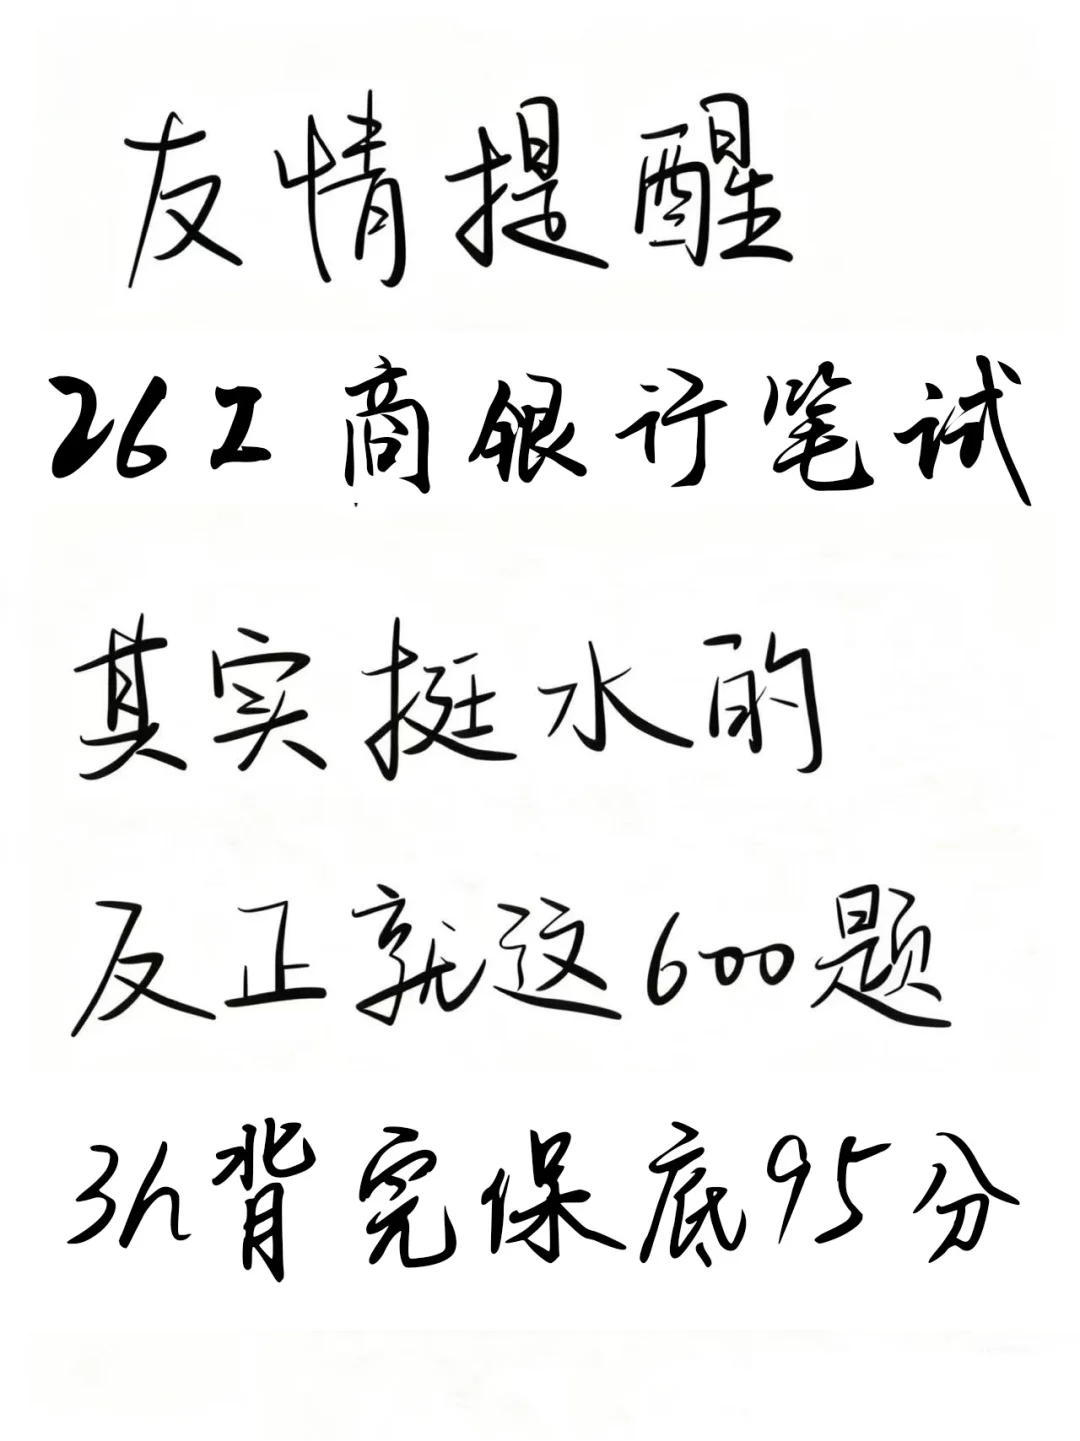 友情提醒
26工商银行笔试
其实挺水的
反正就这600题
3h背完保底95分